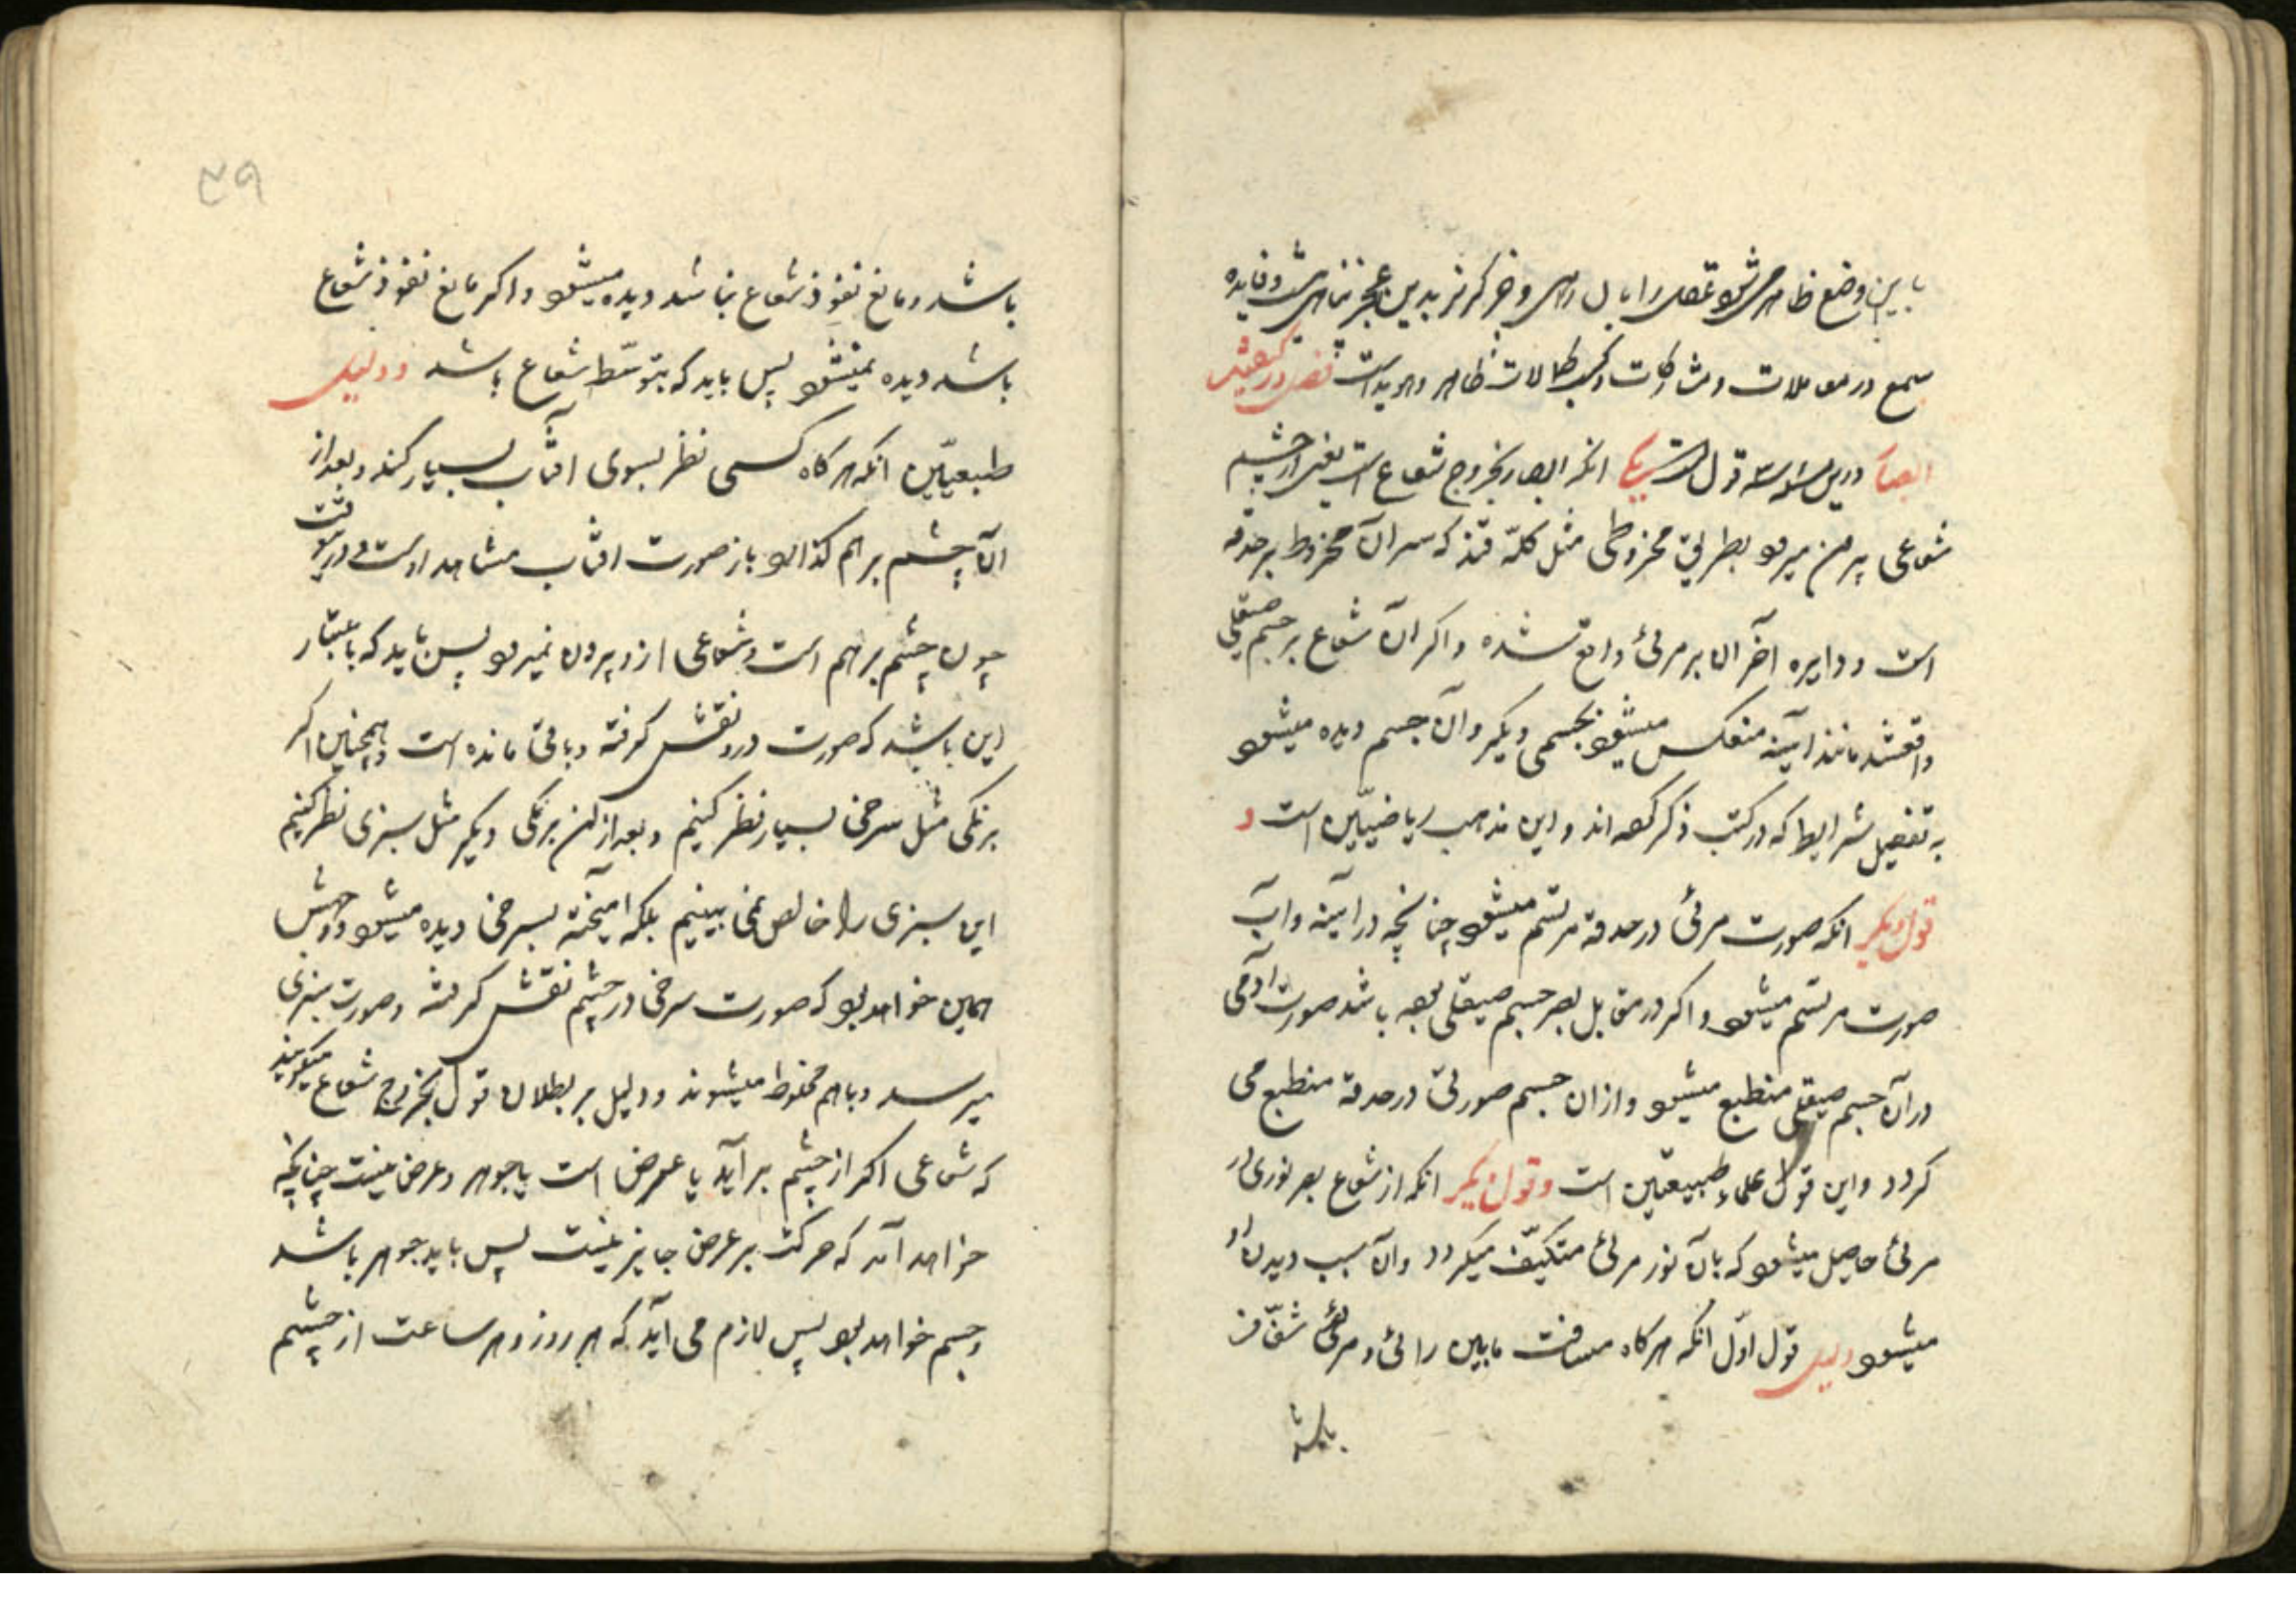 باین وضع ظاهر
سمع در معاملات و مشارکات و کسب کمالات ظاهر و هویداست فصل در کیفیت
ابصار درین مسئله سه قول است یکی انکه ابصار بخروج شعاع است یعنی از چشم
شعاعی بیرون میرود بطریق مخروطی مثل کلّه قند که سر آن مخروط بر حدقه
است و دایره آخر آن بر مرئی واقع شده و اکر آن شعاع بر جسم صیقلی
واقع شد مانند آینه منعکس میشود بجسمی دیکر و آن جسم دیده میشود
به تفصیل شرایط که در کتب ذکر کرده اند و این مذهب ریاضیّین است و
قول دیکر انکه صورت مرئی در حدقه مرتسم میشود چنانچه در آینه و آب
صورت مرتسم میشود و اکر در مقابل بصر جسم صیقلی بوده باشد صورت آدمی
در آن جسم صیقلی منطبع میشود و از ان جسم صورتی در حدقه منطبع می
کردد و این قول علماء طبیعیّین است و قول دیکر انکه از شعاع بصر نوری در
مرئی حاصل میشود که بآن نور مرئی متکیّف میکردد و آن سبب دیدن او
میشود دلیل قول اوّل انکه هرکاه مسافت مابین رائی و مرئی شفّاف
باشد
۳۹
باشد و مانع نفوذ شعاع نباشد دیده میشود و اکر مانع نفوذ شعاع
باشد دیده نمیشود پس باید که بتوسّط شعاع باشد و دلیل
طبیعیّین انکه هرکاه کسی نظر بسوی افتاب بسیار کند و بعد از
آن چشم بر هم کذارد باز صورت افتاب مشاهد اوست و در ین وقت
چون چشم بر هم است و شعاعی از و بیرون نمیرود پس باید که باعتبار
این باشد که صورت در و نقش کرفته و باقی مانده است و همچنین اکر
برنکی مثل سرخی بسیار نظر کنیم و بعد از آن برنکی دیکر مثل سبزی نظر کنیم
این سبزی را خالص نمی بینیم بلکه آمیخته بسرخی دیده میشود و وجهش
همین خواهد بود که صورت سرخی در چشم نقش کرفته و صورت سبزی
میرسد و باهم مخلوط میشوند و دلیل بر بطلان قول بخروج شعاع میکویند
که شعاعی اکر از چشم بر آید یا عرض است یا جوهر و عرض نیست چنانچه
خواهد آمد که حرکت بر عرض جایز نیست پس باید جوهر باشد
و جسم خواهد بود پس لازم می آید که هر روز و هر ساعت از چشم